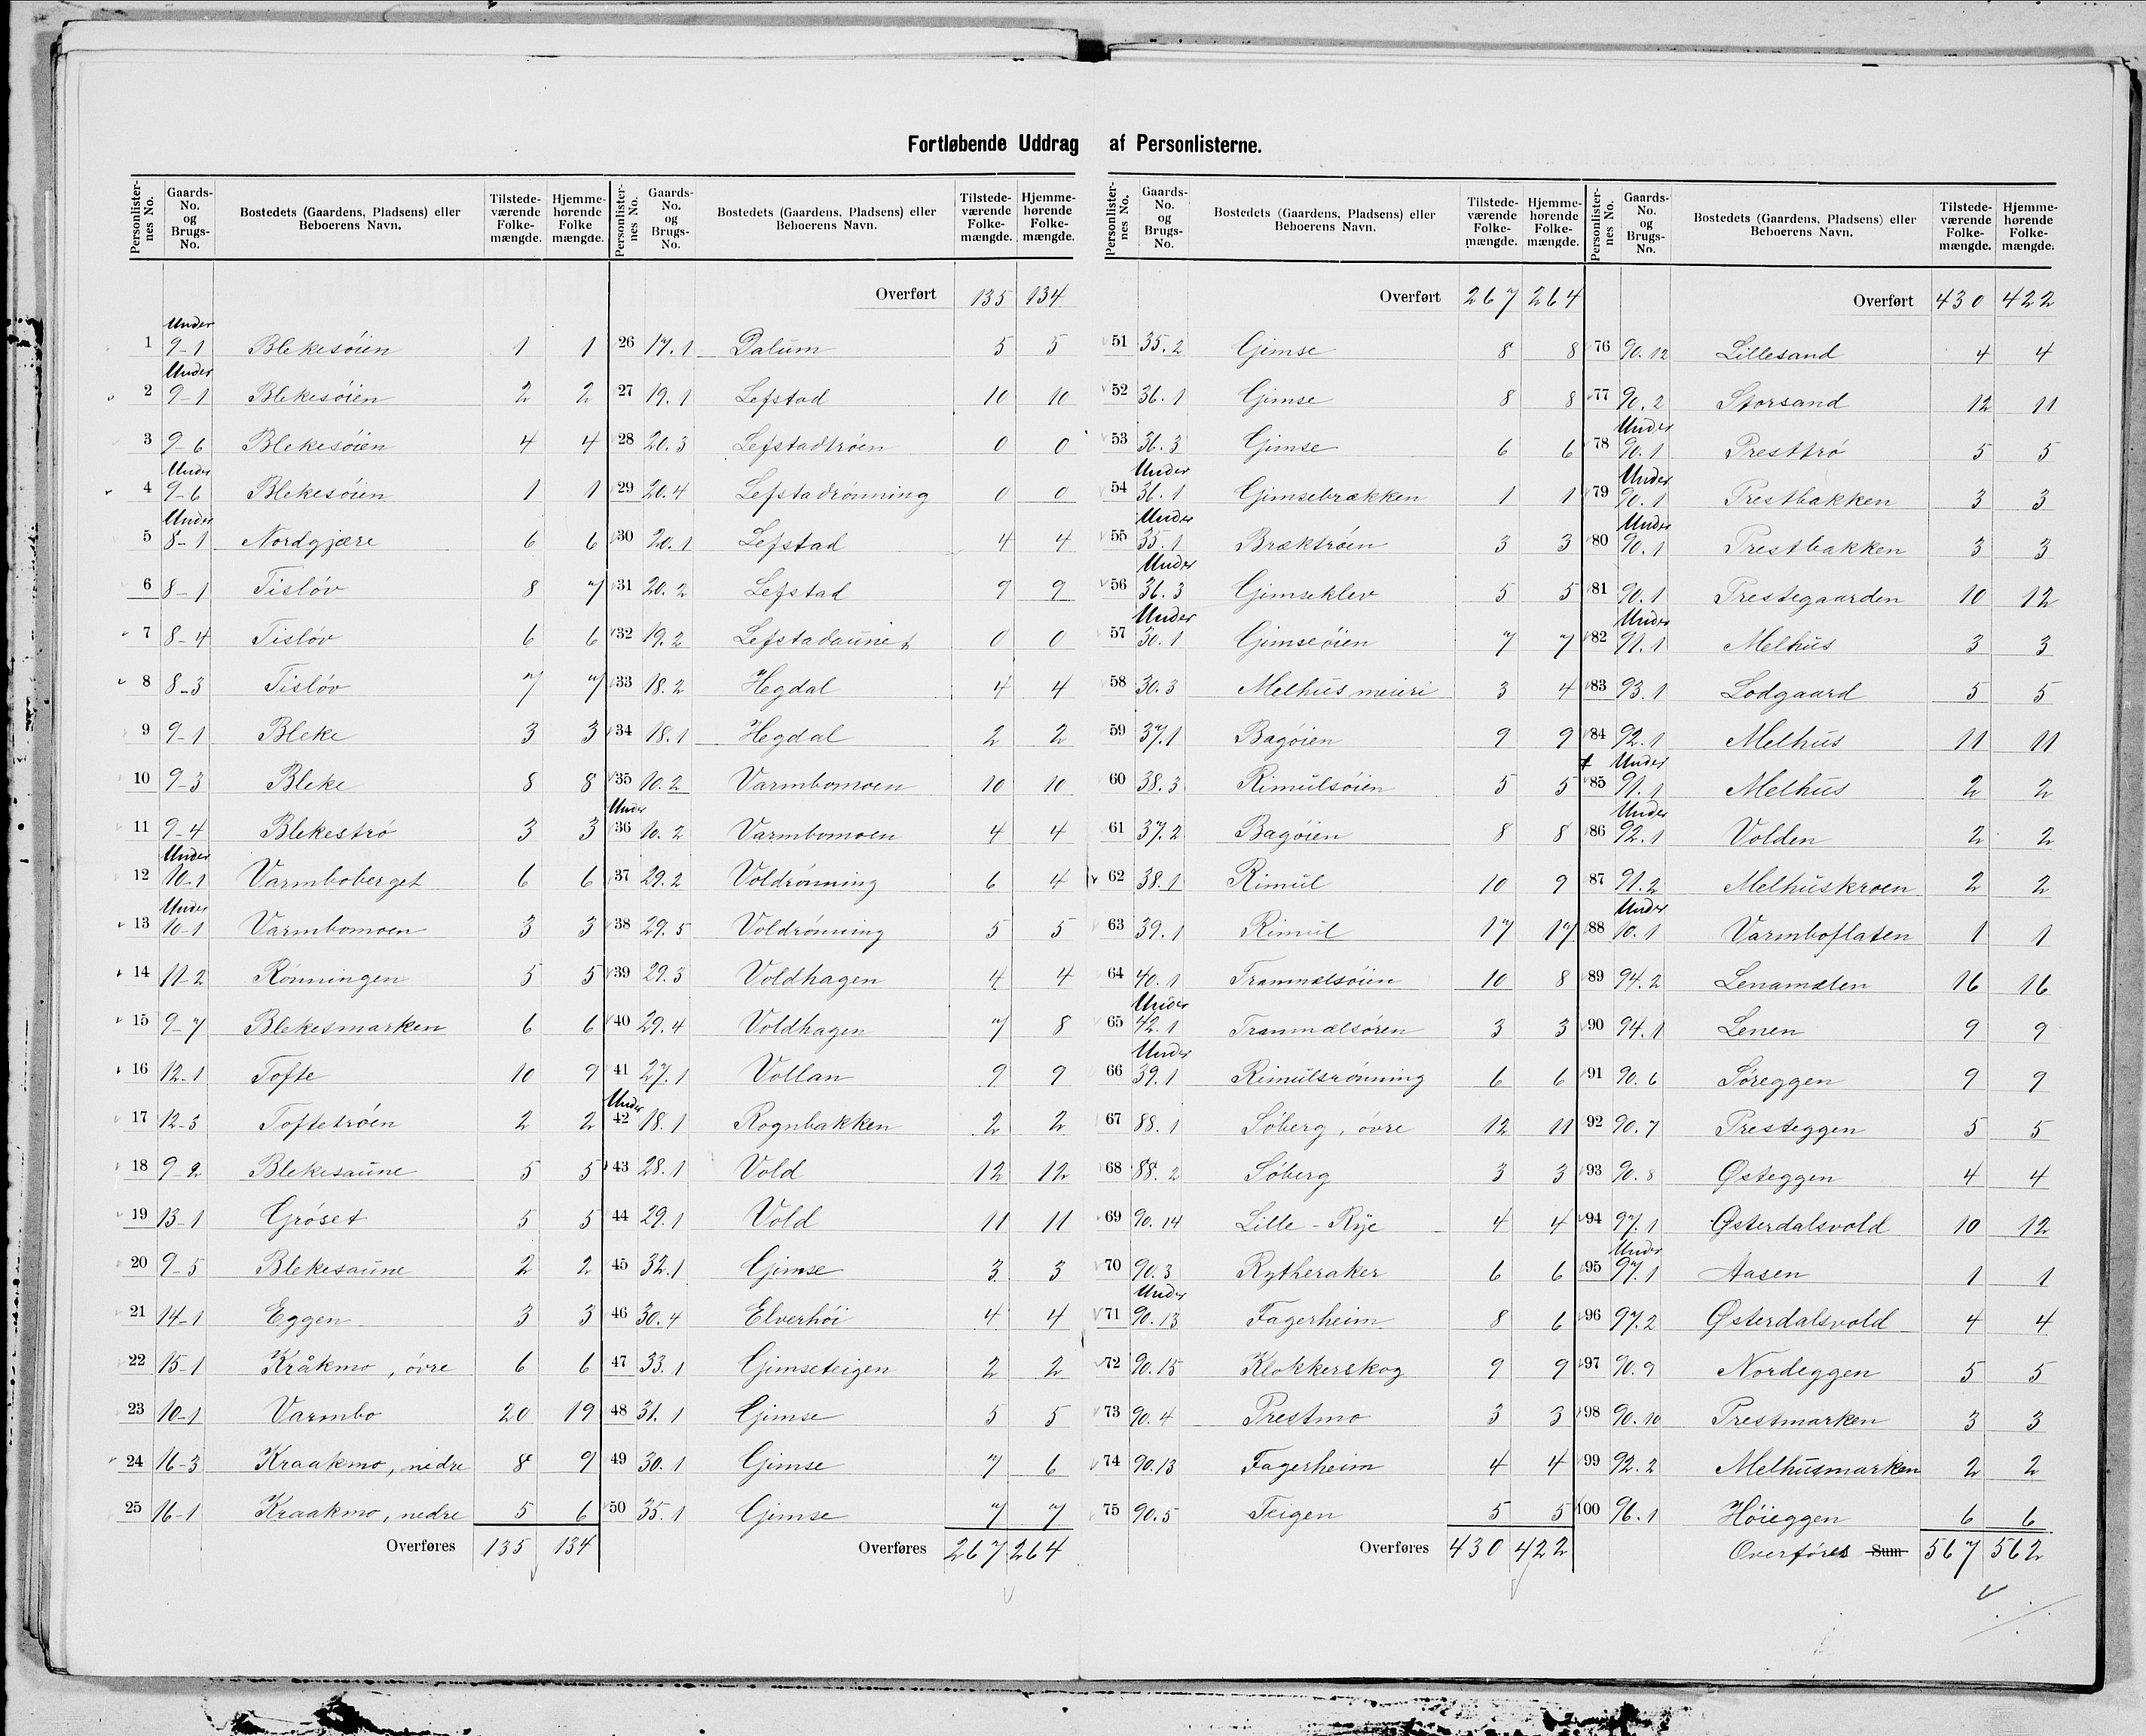 Fortløbende Uddrag af Personlisterne.
Personlister-nes No. Gaards-No. og Brugs-No. Bostedets (Gaardens, Pladsens) eller Beboerens Navn. Tilstede-værende Folke-mængde. Hjemme-hørende Folke mængde.
Under
1 9-1 Blekesöien 1 1
Under
2 9-1 Blekesöien 2 2
3 9-6 Blekesöien 4 4
Under
4 9-6 Blekesöien 1 1
Under
5 8-1 Nordgjære 6 6
6 8-1 Tislöv 8 7
7 8-4 Tislöv 6 6
8 8-3 Tislöv 7 7
9 9-1 Bleke 3 3
10 9-3 Bleke 8 8
11 9-4 Blekeströ 3 3
Under
12 10-1 Varmboberget 6 6
Under
13 10-1 Varmbomoen 3 3
14 11-2 Rönningen 5 5
15 9-7 Blekesmarken 6 6
16 12-1 Tofte 10 9
17 12-3 Toftetröen 2 2
18 9-2 Blekesaune 5 5
19 13-1 Gröset 5 5
20 9-5 Blekesaune 2 2
21 14-1 Eggen 3 3
22 15-1 Kråkmo, övre 6 6
23 10-1 Varmbo 20 19
24 16-3 Kraakmo, nedre 8 9
25 16-1 Kraakmo, nedre 5 6
Overføres 135 134
Personlister-nes No. Gaards-No. og Brugs-No. Bostedets (Gaardens, Pladsens) eller Beboerens Navn. Tilstede-værende Folke-mængde. Hjemme-hørende Folke-mængde.
Overført 135 134
26 17.1 Dalum 5 5
27 19.1 Lefstad 10 10
28 20.3 Lefstadtröen 0 0
29 20.4 Lefstadrönning 0 0
30 20.1 Lefstad 4 4
31 20.2 Lefstad 9 9
32 19.2 Lefstadaunet 0 0
33 18.2 Hegdal 4 4
34 18.1 Hegdal 2 2
35 10.2 Varmbomoen 10 10
Under
36 10.2 Varmbomoen 4 4
37 29.2 Voldrönning 6 4
38 29.5 Voldrönning 5 5
39 29.3 Voldhagen 4 4
40 29.4 Voldhagen 7 8
41 27.1 Vollan 9 9
Under
42 18.1 Rognbakken 2 2
43 28.1 Vold 12 12
44 29.1 Vold 11 11
45 32.1 Gimse 3 3
46 30.4 Elverhöi 4 4
47 33.1 Gimseteigen 2 2
48 31.1 Gimse 5 5
49 30.1 Gimse 7 6
50 35.1 Gimse 7 7
Overføres 267 264
Personlister-nes No. Gaards-No. og Brugs-No. Bostedets (Gaardens, Pladsens) eller Beboerens Navn. Tilstede-værende Folke-mængde. Hjemme-hørende Folke-mængde.
Overført 267 264
51 35.2 Gimse 8 8
52 36.1 Gimse 8 8
53 36.3 Gimse 6 6
Under
54 36.1 Gimsebrækken 1 1
Under
55 35.1 Bræktröen 3 3
Under
56 36.3 Gimseklev 5 5
Under
57 30.1 Gimseöien 7 7
58 30.3 Melhus meieri 3 4
59 37.1 Bagöien 9 9
60 38.3 Rimulsöien 5 5
61 37.2 Bagöien 8 8
62 38.1 Rimul 10 9
63 39.1 Rimul 17 17
64 40.1 Tranmælsöien 10 8
Under
65 42.1 Tranmælsören 3 3
Under
66 39.1 Rimulsrönning 6 6
67 88.1 Söberg, övre 12 11
68 88.2 Söberg 3 3
69 90.14 Lille-Rye 4 4
70 90.3 Rytheraker 6 6
Under
71 90.13 Fagerheim 8 6
72 90.15 Klokkerskog 9 9
73 90.4 Prestmo 3 3
74 90.13 Fagerheim 4 4
75 90.5 Teigen 5 5
Overføres 430 422
Personlister-nes No. Gaards-No. og Brugs-No. Bostedets (Gaardens, Pladsens) eller Beboerens Navn. Tilstede-værende Folke-mængde. Hjemme-hørende Folke-mængde.
Overført 430 422
76 90.12 Lillesand 4 4
77 90.2 Storsand 12 11
Under
78 90.1 Presttrö 5 5
Under
79 90.1 Prestbakken 3 3
Under
80 90.1 Prestbakken 3 3
81 90.1 Prestegaarden 10 12
Under
82 91.1 Melhus 3 3
83 93.1 Lodgaard 5 5
84 92.1 Melhus 11 11
Under
85 91.1 Melhus 2 2
Under
86 92.1 Volden 2 2
87 91.2 Melhuskroen 2 2
Under
88 10.1 Varmboflaten 1 1
89 94.2 Lenamælen 16 16
90 94.1 Lenen 9 9
91 90.6 Söreggen 9 9
92 90.7 Presteggen 5 5
93 90.8 Østeggen 4 4
94 97.1 Østerdalsvold 10 12
Under
95 97.1 Aasen 1 1
96 97.2 Østerdalsvold 4 4
97 90.9 Nordeggen 5 5
98 90.10 Prestmarken 3 3
99 92.2 Melhusmarken 2 2
100 96.1 Höieggen 6 6
Overföres Sum 567 562